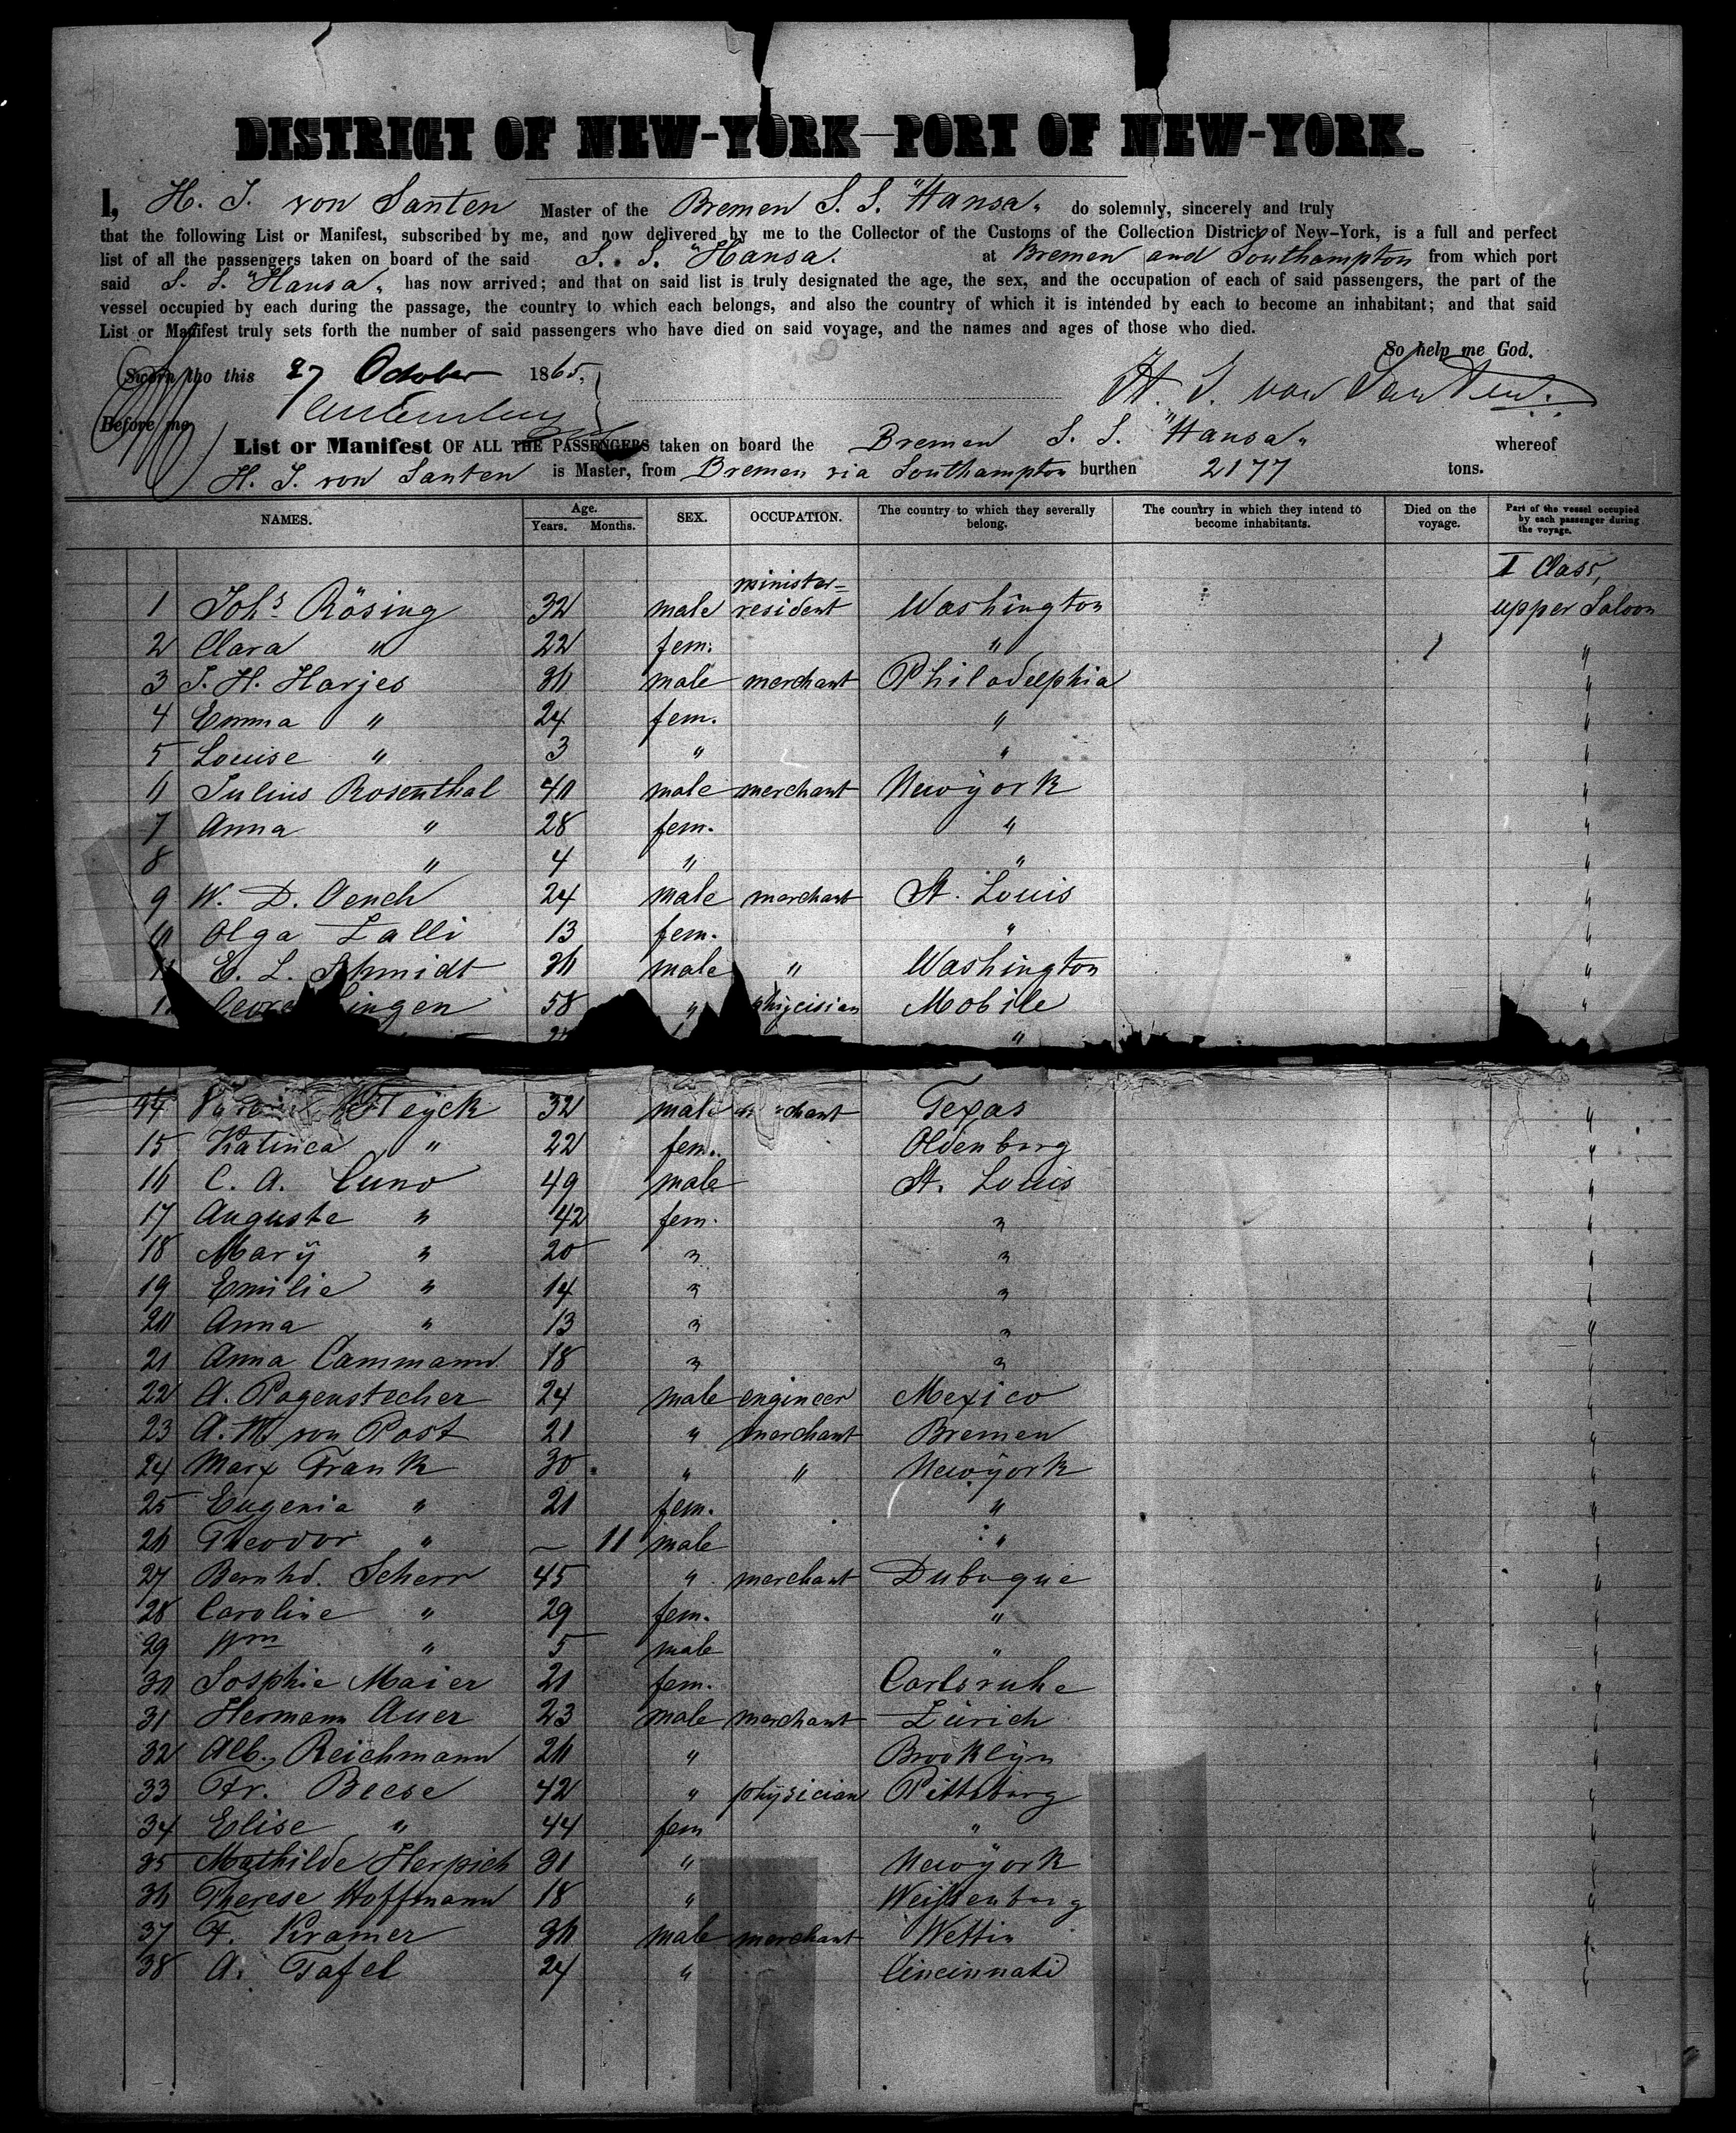 DISTRICT OF NEW-YORK—PORT OF NEW-YORK.
I, H. J. von Santen Master of the Bremen S. S. "Hansa" do solemnly, sincerely and truly
that the following List or Manifest, subscribed by me, and now delivered by me to the Collector of the Customs of the Collection District of New-York, is a full and perfect
list of all the passengers taken on board of the said S. S. "Hansa" at Bremen and Southampton from which port
said S. S. "Hansa" has now arrived; and that on said list is truly designated the age, the sex, and the occupation of each of said passengers, the part of the
vessel occupied by each during the passage, the country to which each belongs, and also the country of which it is intended by each to become an inhabitant; and that said
List or Manifest truly sets forth the number of said passengers who have died on said voyage, and the names and ages of those who died.
So help me God.
Sworn tho this 27 October 1865.
H. J. von Santen.
Before me
List or Manifest OF ALL THE PASSENGERS taken on board the Bremen S. S. "Hansa" whereof
H. J. von Santen is Master, from Bremen via Southampton burthen 2177 tons.
NAMES. Age. Years. Months. SEX. OCCUPATION. The country to which they severally belong. The country in which they intend to become inhabitants. Died on the voyage. Part of the vessel occupied by each passenger during the voyage.
I Class,
1 Johs. Rösing 32 male minister=resident Washington upper Saloon
2 Clara " 22 fem. " "
3 J. H. Harjes 36 male merchant Philadelphia "
4 Emma " 24 fem. " "
5 Louise " 3 " " "
6 Julius Rosenthal 40 male merchant Newÿork "
7 Anna " 28 fem. " "
8 " 4 " " "
9 W. D. Oench 24 male merchant St. Louis "
10 Olga Zalli 13 fem. " "
11 E. L. Schmidt 36 male " Washington "
Lingen 58 " phycisian Mobile "
"
14 Teÿck 32 male merchant Texas "
15 Katinca " 22 fem. Oldenburg "
16 C. A. Cuno 49 male St. Louis "
17 Auguste " 42 fem. " "
18 Marÿ " 20 " " "
19 Emilie " 14 " " "
20 Anna " 13 " " "
21 Anna Cammann 18 " " "
22 A. Pagenstecher 24 male engineer Mexico "
23 A. W. von Post 21 " merchant Bremen "
24 Marx Frank 30 " " Newÿork "
25 Eugenia " 21 fem. " "
26 Theodor " — 11 male " "
27 Bernhd. Scherr 45 " merchant Dubuque "
28 Caroline " 29 fem. " "
29 Wm " 5 male " "
30 Sosphie Maier 21 fem. Carlsruhe "
31 Hermann Auer 23 male merchant Zürich "
32 Alb. Reichmann 26 " Brooklÿn "
33 Fr. Beese 42 " phÿsician Pittsburg "
34 Elise " 44 fem " "
35 Mathilde Herpich 31 " Newÿork "
36 Therese Hoffmann 18 " Weissenburg "
37 F. Kramer 36 male merchant Wettin "
38 A. Tafel 24 " Cincinnati "